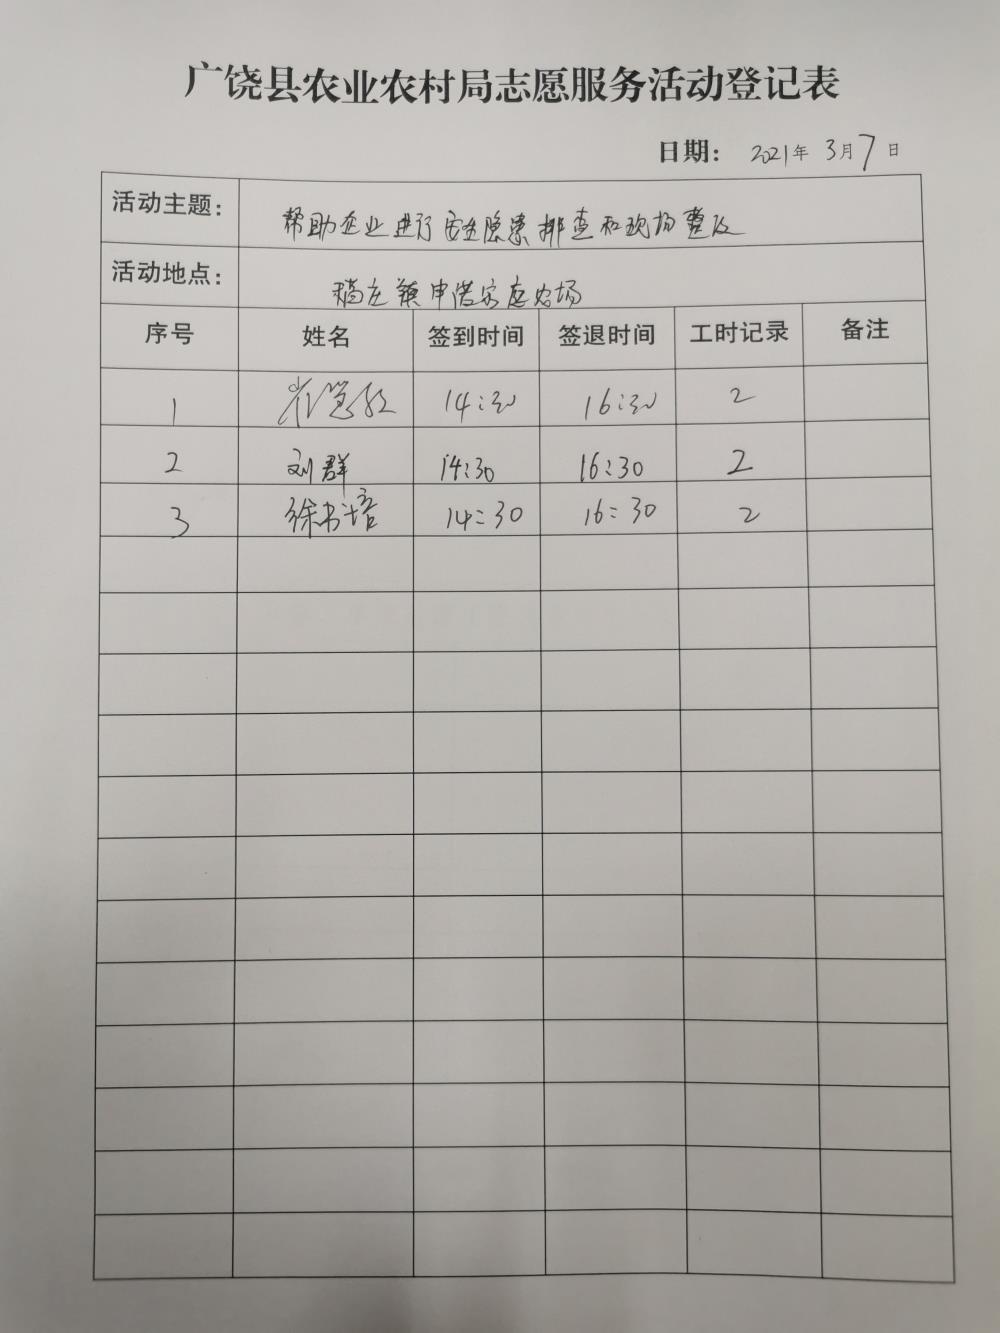 广饶县农业农村局志愿服务活动登记表
日期： 2021年 3月7日
活动主题： 帮助企业进行安全隐患排查和现场整改
活动地点： 稿庄镇申浩家庭农场
序号 姓名 签到时间 签退时间 工时记录 备注
1 崔 14:30 16:30 2
2 刘群 14:30 16:30 2
3 徐书培 14:30 16:30 2